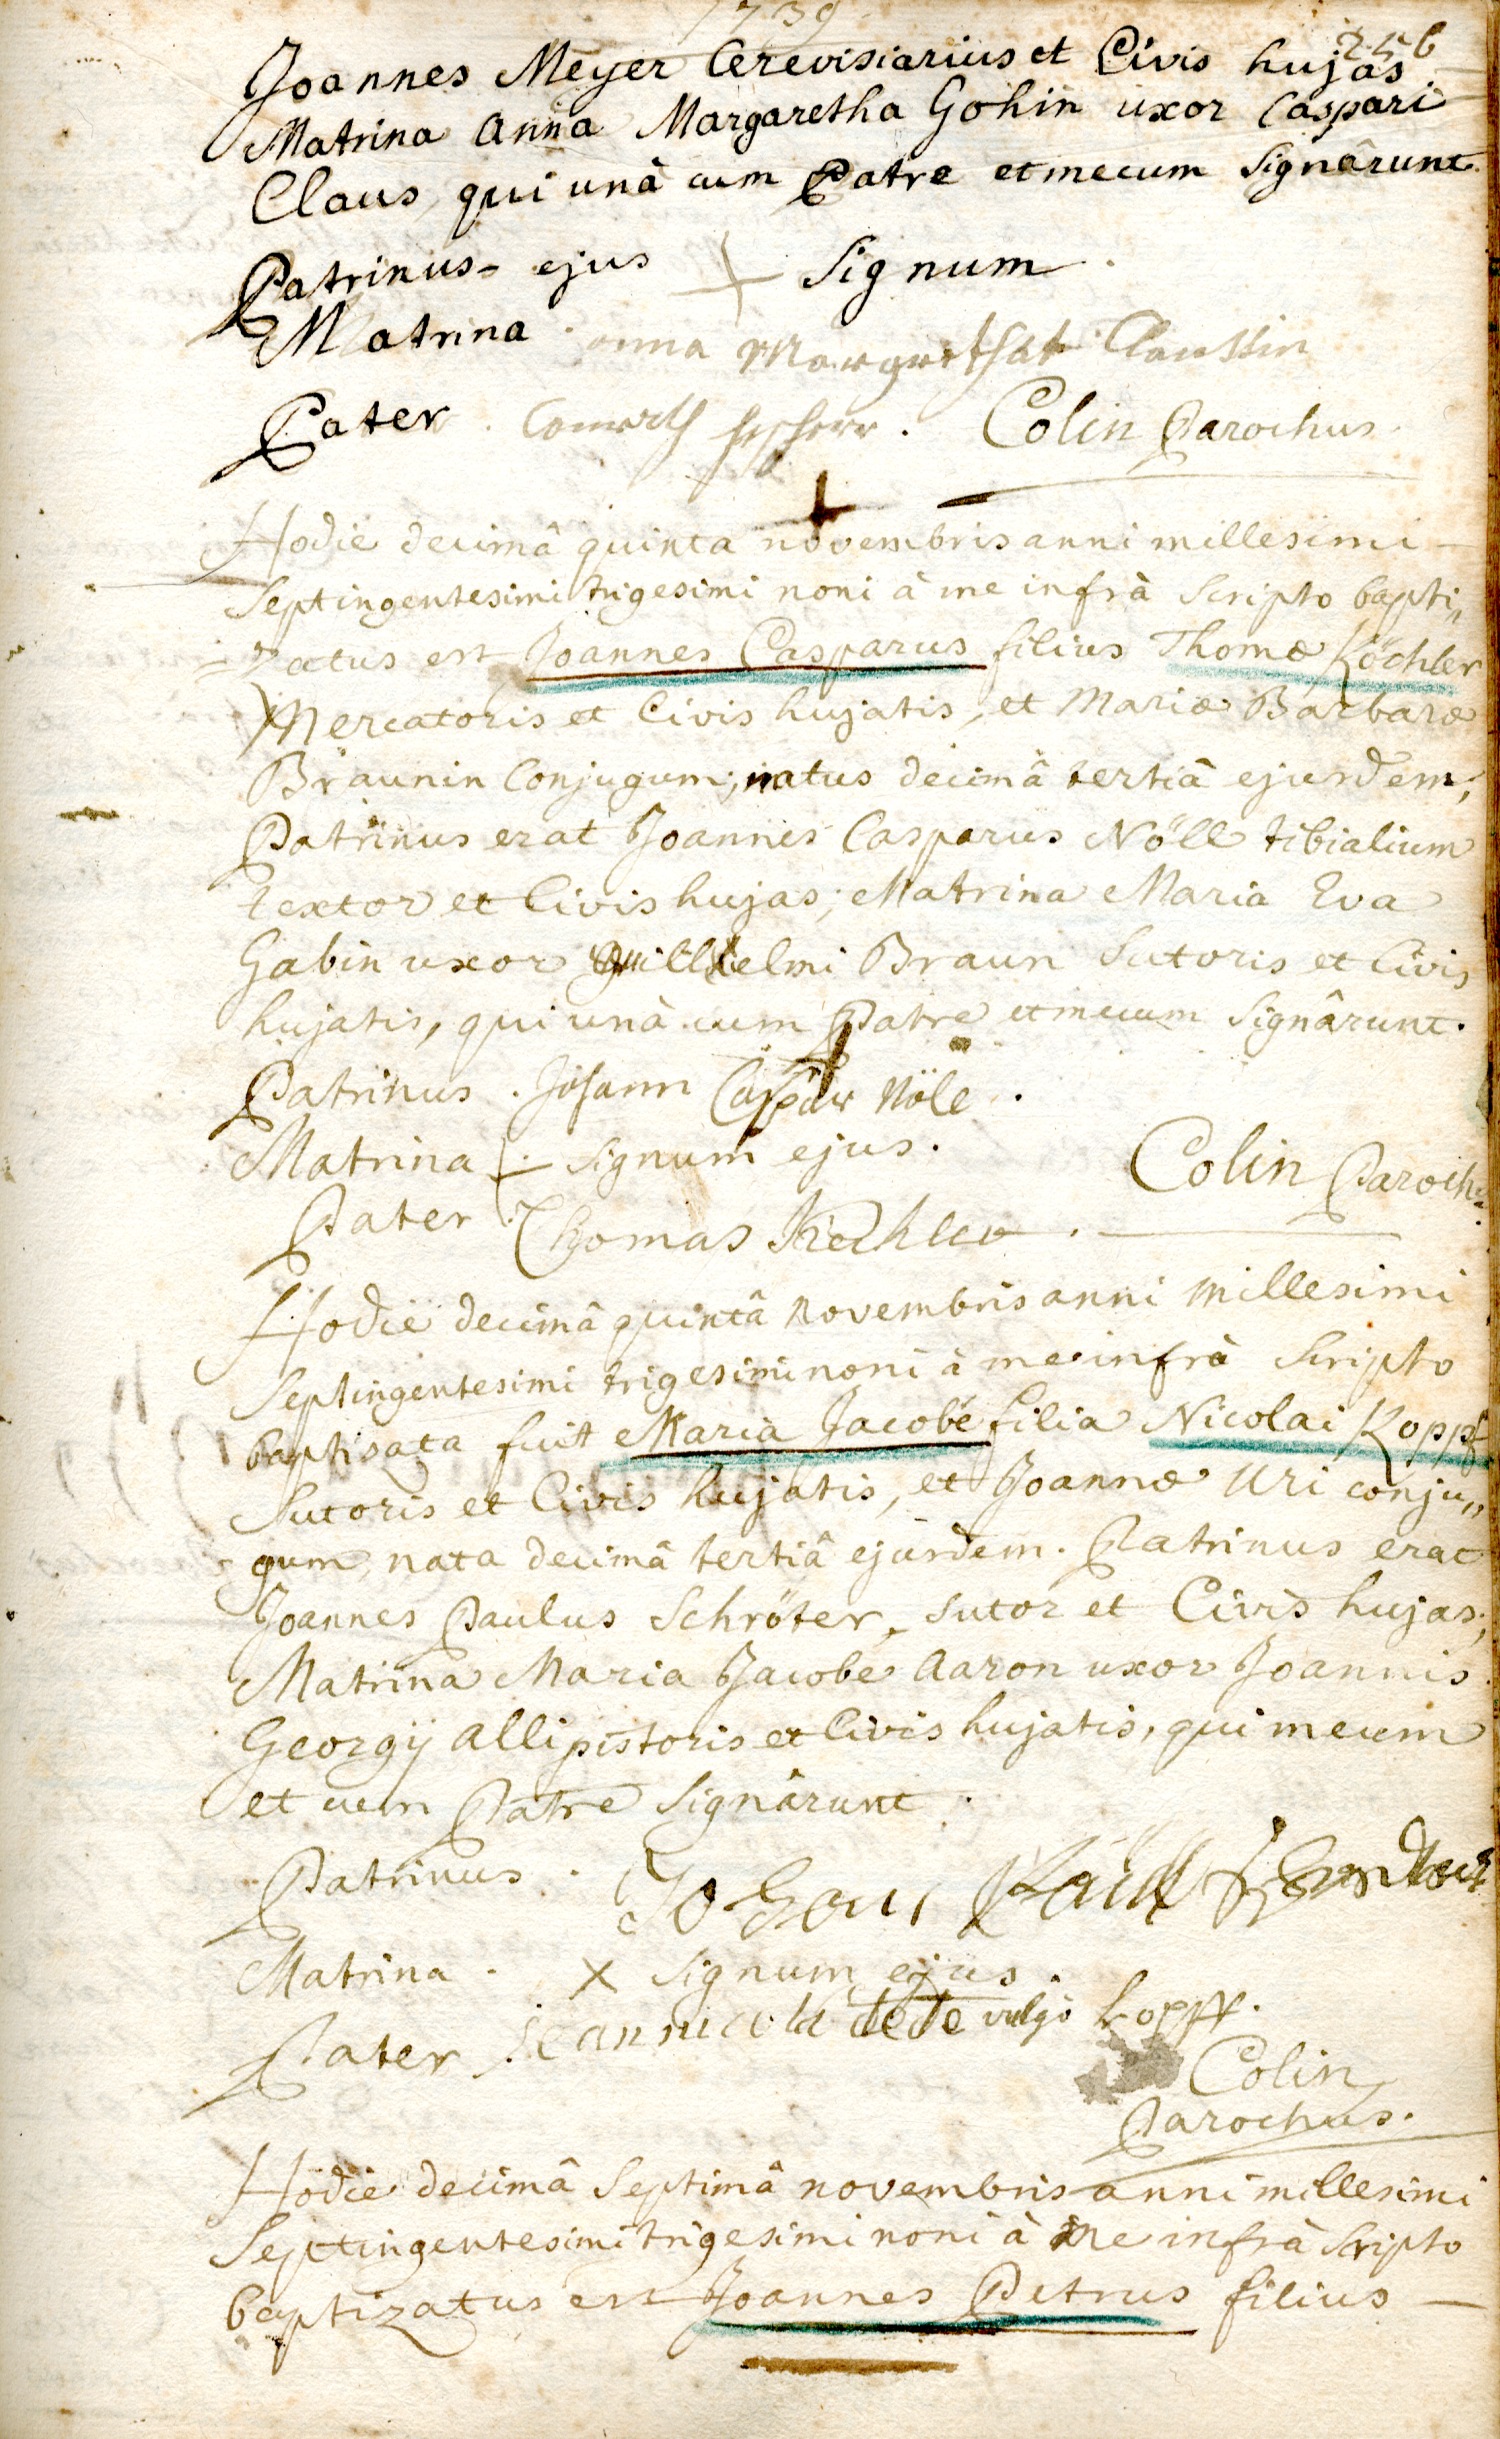 1739
256
Joannes Meyer Cerevisiarius et Civis hujas
Matrina anna Margaretha Gohin uxor Caspari
Claus, qui unà cum Patre et mecum Signârunt.
Patrinus ejus + Signum.
Matrina. anna Margrethat Claussin
Pater. Conrath. Colin Parochus.
Hodie decimâ quinta novembris anni millesimi
Septingentesimi trigesimi noni à me infrà Scripto bapti„
zatus est Joannes Casparus filius Thomæ Köchler
Mercatoris et Civis hujatis, et Mariæ Barbaræ
Braunin Conjugum; natus decimâ tertiâ ejusdem;
Patrinus erat Joannes Casparus Nöll tibialium
textor et Civis hujas; Matrina Maria Eva
Gabin uxor Guillielmi Braun Sutoris et Civis
hujatis, qui unà cum Patre et mecum Signârunt.
Patrinus. Johann Caspar Nöle.
Matrina + Signum ejus. Colin Paroch:
Pater. Thomas Kechler.
Hodie decimâ quintâ Novembris anni Millesimi
Septingentesimi trigesimi noni à me infrà Scripto
baptisata fuit Maria Jacobé filia Nicolai Kopff
Sutoris et Civis hujatis, et Joannæ Uri conju„
gum, nata decimâ tertiâ ejusdem. Patrinus erat
Joannes Paulus Schröter, Sutor et Civis hujas;
Matrina Maria Jacobe Aaron uxor Joannis
Georgij alli pistoris et Civis hujatis, qui mecum
et cum Patre Signârunt.
Patrinus.
Matrina. X Signum ejus.
Pater. Jean nicola tete vulgò kopff.
Colin
Parochus.
Hodie decimâ Septimâ novembris anni millesimi
Septingentesimi trigesimi noni à me infrà Scripto
baptizatus est Joannes Petrus filius